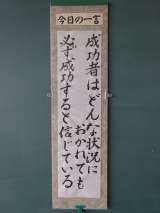 今日の一言
成功者はどんな状況に
おかれても
必ず成功すると信じている